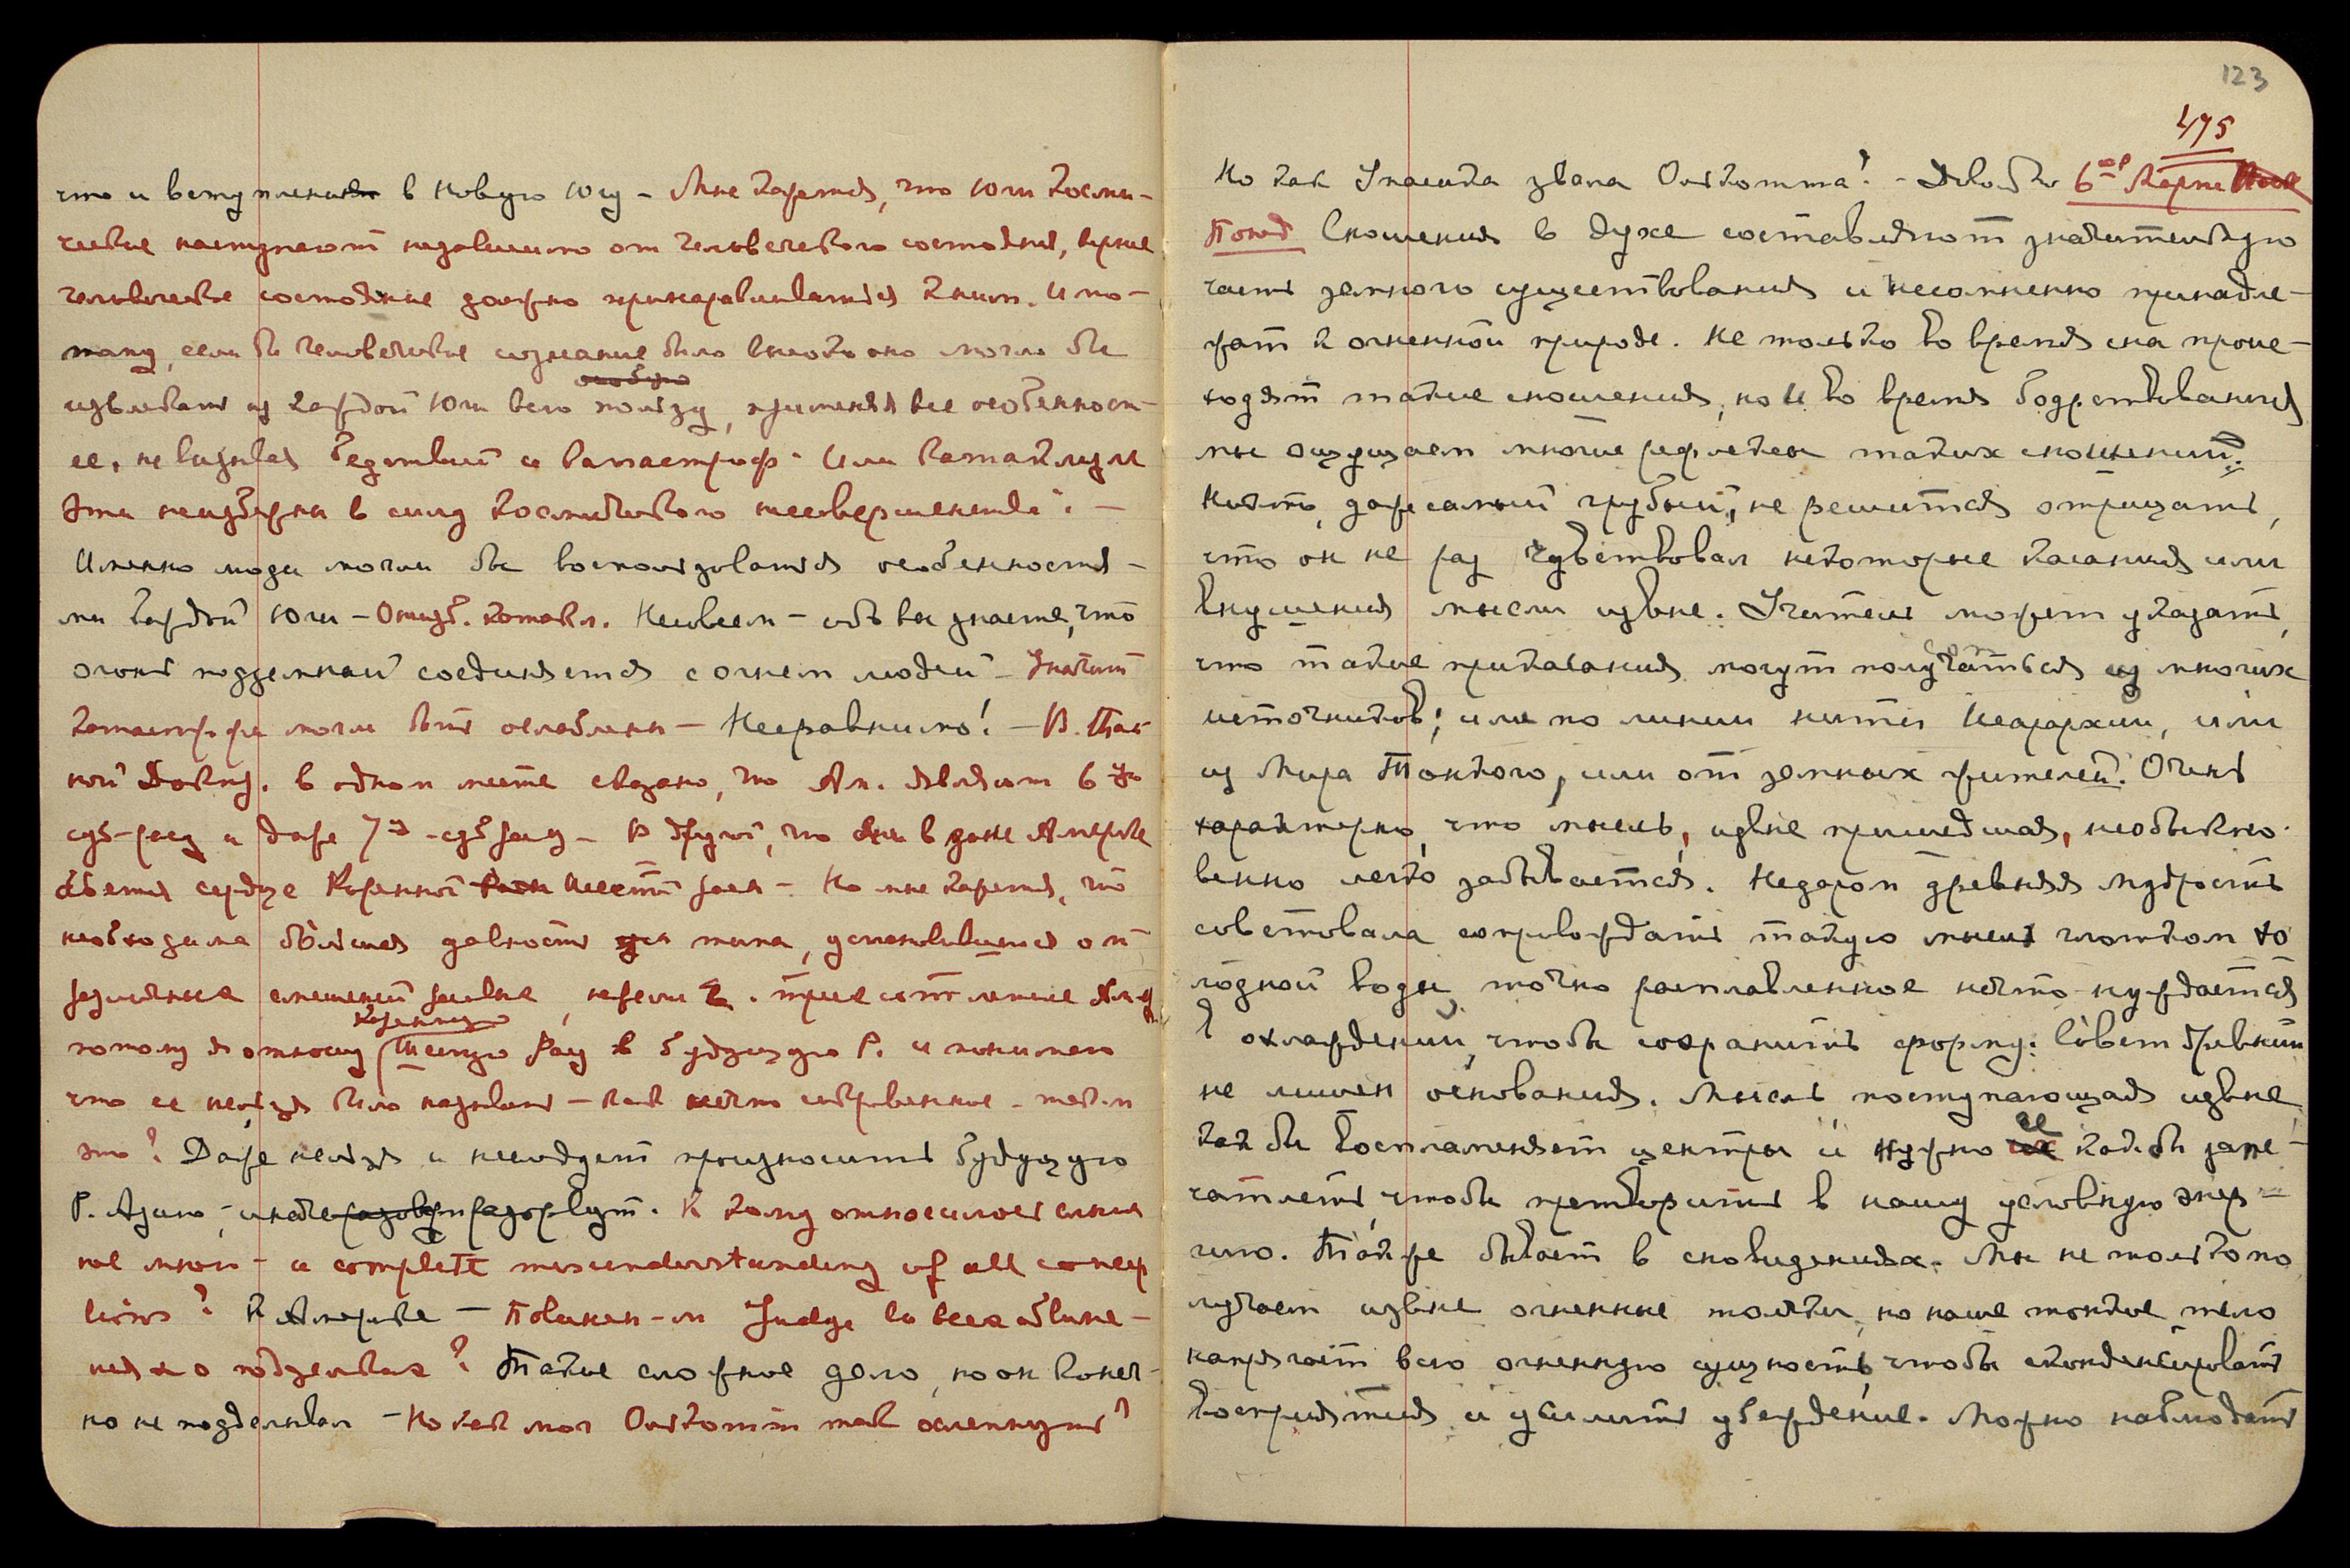 что и вступления в Новую Югу – Мне кажется, что Юги Косми-
ческие наступают независимо от человеческого состояния, вернее
человеческое состояние должно приноравливаться к ним. И по-
тому, если бы человеческое сознание было высоко оно могло бы
особую
извлекать из каждой Юги всю пользу, применяя все особенности
ее, не вызывая бедствий и катастроф. Или катаклизмы
эти неизбежны в силу космического несовершенства? –
Именно люди могли бы воспользоваться особенностя-
ми каждой Юги – Ошиб. Не совсем – ибо вы знаете, что
огонь подземный соединяется с огнем людей – Значит
катастрофы могли быть ослаблены – Несравнимо! – В Тай-
ной Доктр. в одном месте сказано, что Ам. являют 6-ую
суб-расу и даже 7-ю суб расу – В другой, что они в зоне Америке
бьется сердце Коренной Расы Шестой расы – Но мне кажется, что
необходима большая давность для типа, установившегося от
различных смешений
Коренную
потому я отношу Шестую Расу в будущую Р. и понимаю
что ее нельзя было называть – как нечто сокровенное – так ли
это? Даже нельзя и не следует произносить будущую
Р. Азию, – иначе разовут разорвут. К кому относилось
мной – a complete misunderstanding of all concep
tions? К Америке – Повинен-ли Judge во всех обвине-
ниях о подделках? Такое сложное дело, но он конеч-
но не подделывал – Но как мог Олькотт так ослепнуть?
123
475
Но как Упасика звала Олькотта? – 6-ое Марта
Понед Сношения в духе составляют значительную
часть земного существования и несомненно принадле-
жат к огненной природе. Не только во время сна проис-
ходят такие сношения, но и во время бодрствования
мы ощущаем многие рефлексы таких сношений.
Никто, даже самый грубый, не решится отрицать,
что он не раз чувствовал некоторые касания или
внушения мысли извне. Учитель может указать,
что такие прикасания могут получаться из многих
источников; или по линии нити Иерархии, или
из Мира Тонкого, или от земных жителей. Очень
характерно, что мысль, извне пришедшая, необыкно-
венно легко забывается. Недаром древняя мудрость
советовала сопровождать такую мысль глотком хо
лодной воды, точно расплавленное нечто нуждается
в охлаждении, чтобы сохранить форму. Совет древний
не лишен основания. Мысль поступающая извне
ее
как бы воспламеняет центры и нужно как бы запе-
чатлеть, чтобы претворить в нашу условную энер-
гию. Также бывает в сновидениях. Мы не только по
лучаем извне огненные толчки, но наше тонкое тело
напрягает всю огненную сущность, чтобы сконденсировать
восприятия и усилить убеждение. Можно наблюдать